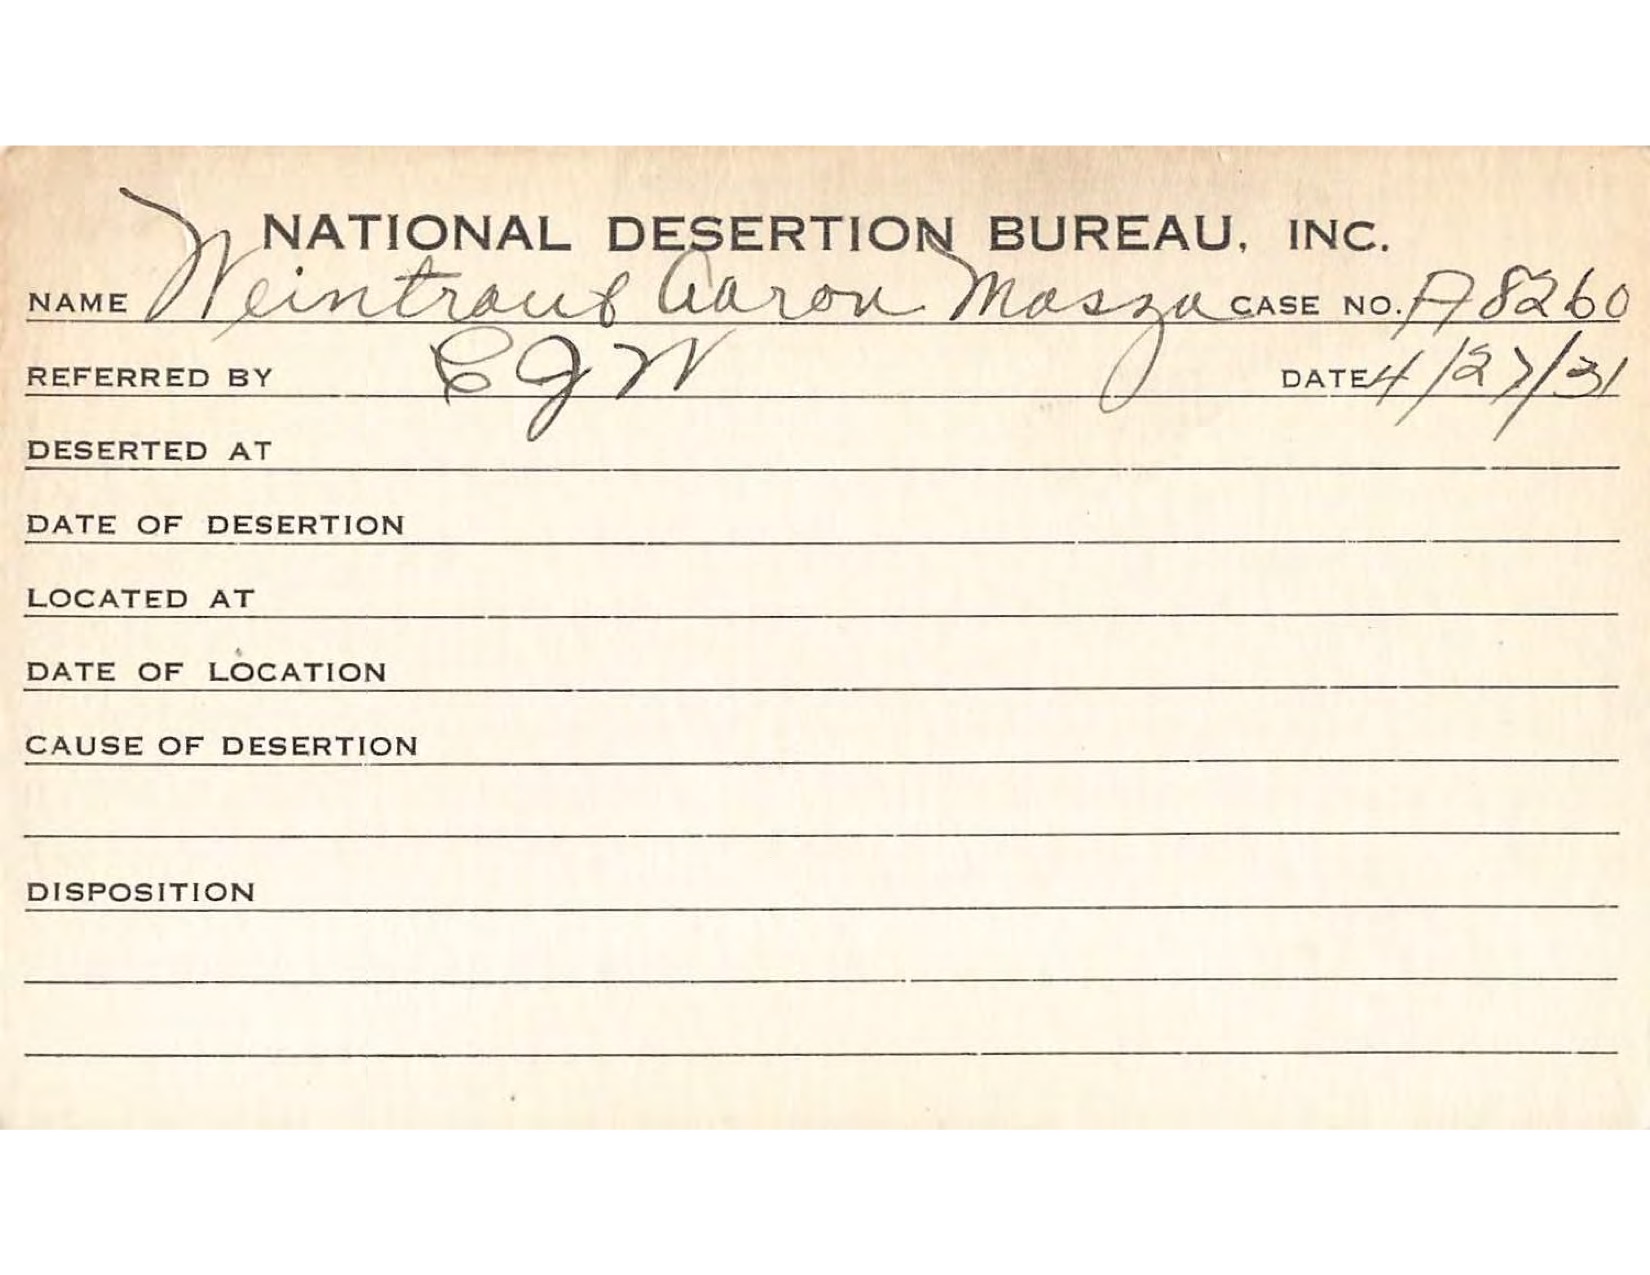 NATIONAL DESERTION BUREAU, INC.
NAME Weintraub Aaron Masza CASE NO. A8260
REFERRED BY CJW DATE 4/27/31
DESERTED AT
DATE OF DESERTION
LOCATED AT
DATE OF LOCATION
CAUSE OF DESERTION
DISPOSITION